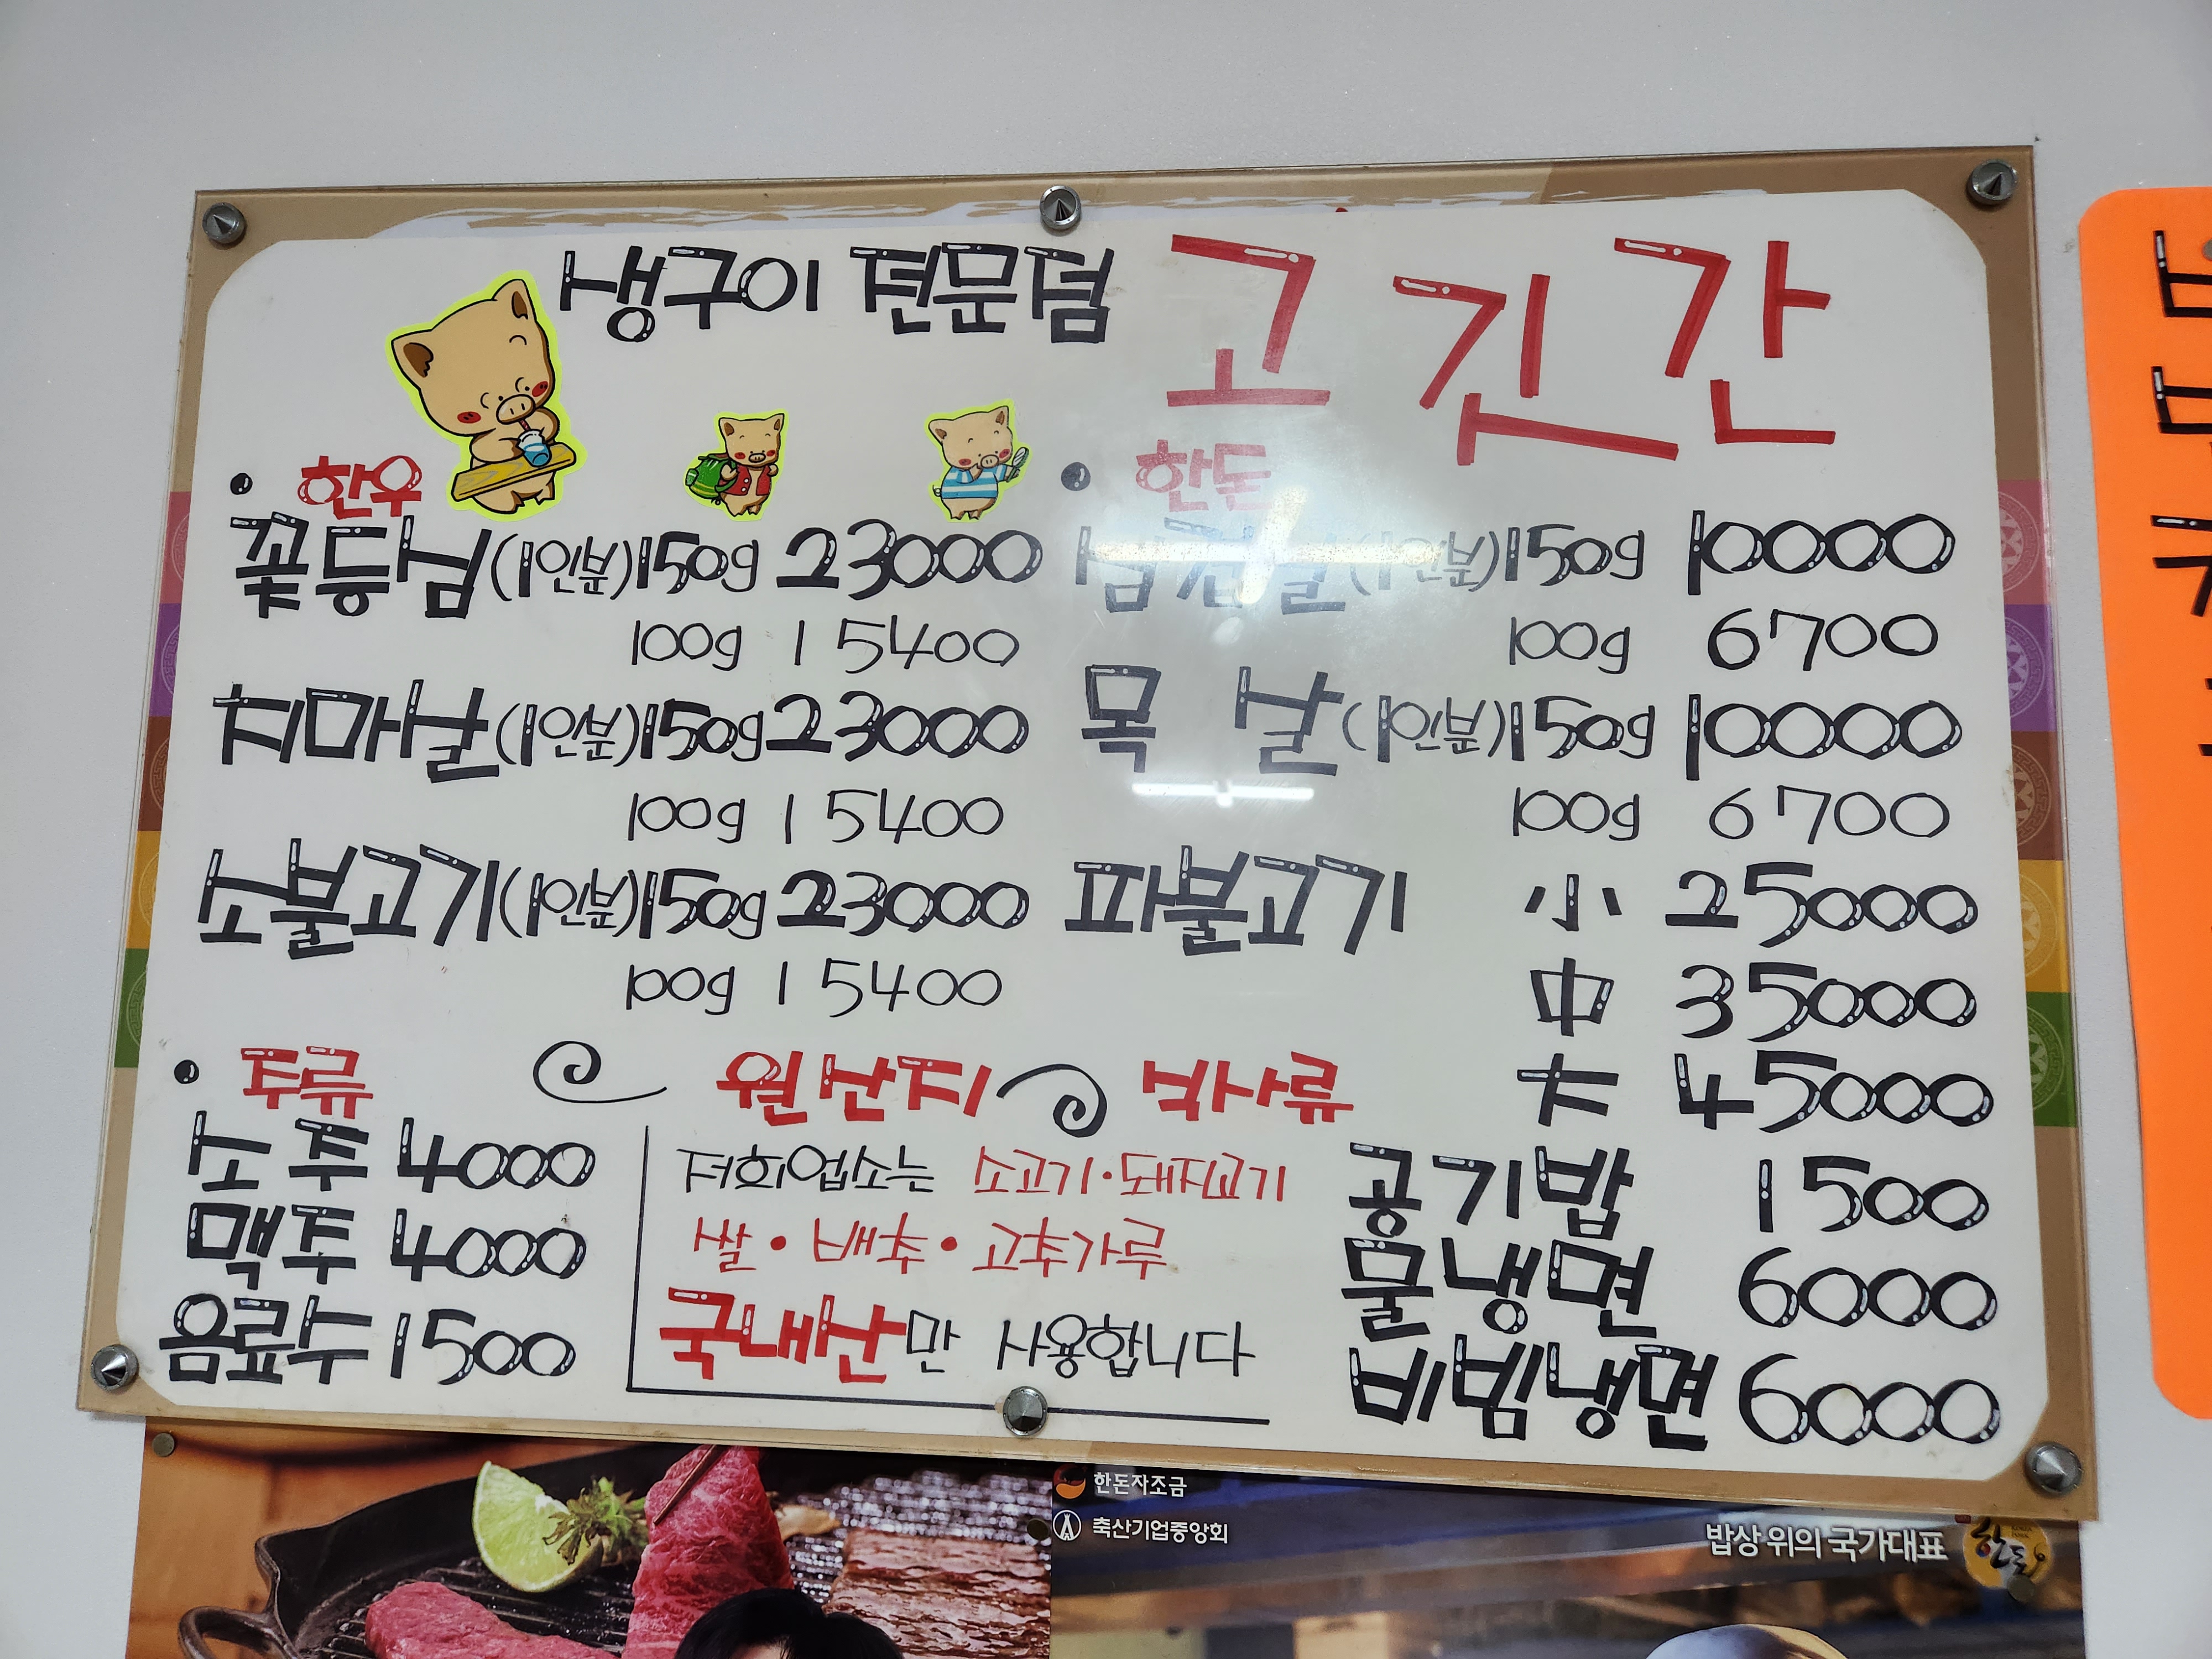 생구이 전문점 고깃간
• 한우
꽃등심(1인분)150g 23000
100g 15400
치마살(1인분)150g 23000
100g 15400
소불고기(1인분)150g 23000
100g 15400
• 한돈
삼겹살(1인분)150g 10000
100g 6700
목살(1인분)150g 10000
100g 6700
파불고기 小 25000
中 35000
大 45000
• 주류
소주 4000
맥주 4000
음료수 1500
원산지
저희업소는 소고기·돼지고기
쌀·배추·고추가루
국내산만 사용합니다
식사류
공기밥 1500
물냉면 6000
비빔냉면 6000
한돈자조금
축산기업중앙회
밥상 위의 국가대표
한돈